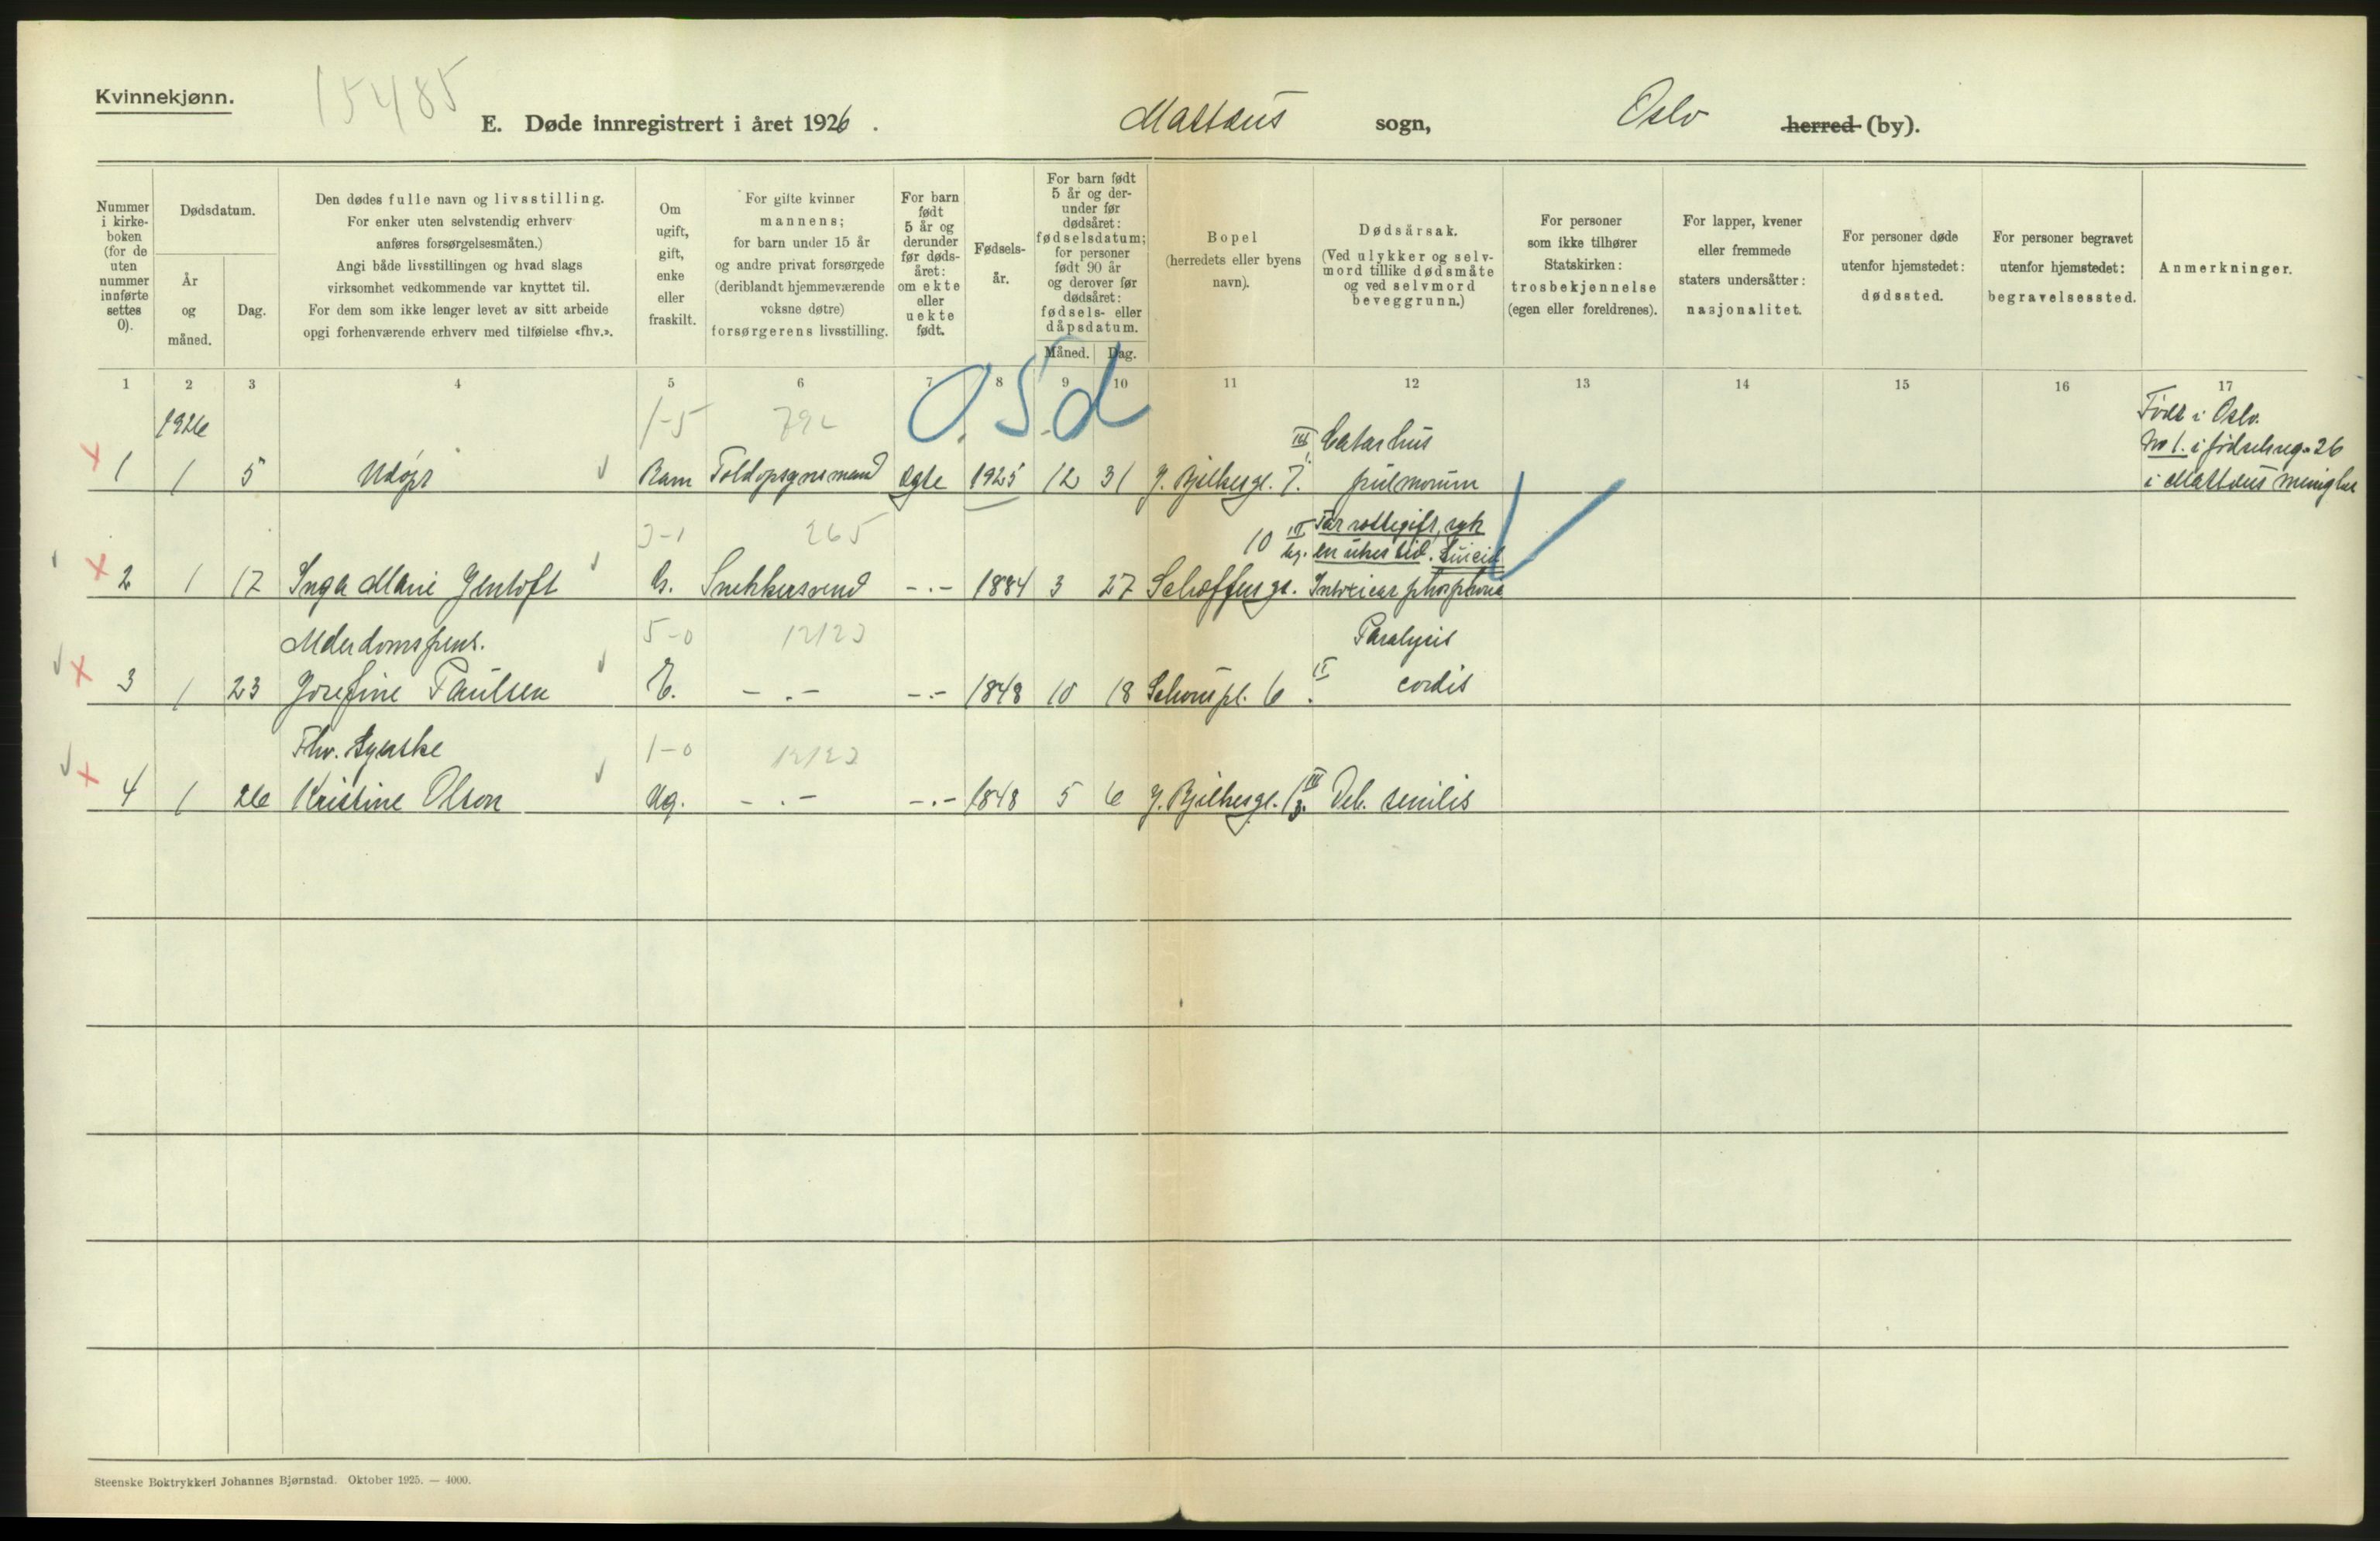 Kvinnekjønn.
15485
E. Døde innregistrert i året 1926.
Mattæus sogn,
Oslo herred (by).
Nummer i kirkeboken (for de uten nummer innførte settes 0).
Dødsdatum.
År og måned.
Dag.
Den dødes fulle navn og livsstilling.
For enker uten selvstendig erhverv anføres forsørgelsesmåten.)
Angi både livsstillingen og hvad slags virksomhet vedkommende var knyttet til.
For dem som ikke lenger levet av sitt arbeide opgi forhenværende erhverv med tilføielse «fhv.».
Om ugift, gift, enke eller fraskilt.
For gifte kvinner mannens; for barn under 15 år og andre privat forsørgede (deriblandt hjemmeværende voksne døtre) forsørgerens livsstilling.
For barn født 5 år og derunder før dødsåret: om ekte eller uekte født.
Fødselsår.
For barn født 5 år og derunder før dødsåret: fødselsdatum; for personer født 90 år og derover før dødsåret: fødsels- eller dåpsdatum.
Måned. Dag.
Bopel (herredets eller byens navn).
Dødsårsak.
(Ved ulykker og selvmord tillike dødsmåte og ved selvmord beveggrunn.)
For personer som ikke tilhører Statskirken: trosbekjennelse (egen eller foreldrenes).
For lapper, kvener eller fremmede staters undersåtter: nasjonalitet.
For personer døde utenfor hjemstedet: dødssted.
For personer begravet utenfor hjemstedet: begravelsessted.
Anmerkninger.
1 2 3 4 5 6 7 8 9 10 11 12 13 14 15 16 17
O.S.d
1926 1-5 792 III Catarhus Født i Oslo.
No 1. i fødselsreg. 26
1 1 5 Udøpt Barn Toldopsynsmand Ægte 1925 12 31 J. Bjelkesgt. 7. pulmorum i Mattæus menighet
265 10 IV Tar rottegift, syk
en ukes tid. Suicid
2 1 17 Inga Marie Gentoft G. Snekkersvend -.- 1884 3 27 Schæffersgt. Intoxicat phosphoric
Alderdomspens. 5-0 12123 Paralysis
3 1 23 Josefine Paulsen E. -.- -.- 1848 10 18 Schouspl. 6 II. cordis
Fhv. Syerske 1-0 12123
4 1 26 Kristine Olson Ug. -.- -.- 1848 5 6 J. Bjelkesgt. 13 III. Deb. senilis
Steenske Boktrykkeri Johannes Bjørnstad. Oktober 1925. — 4000.